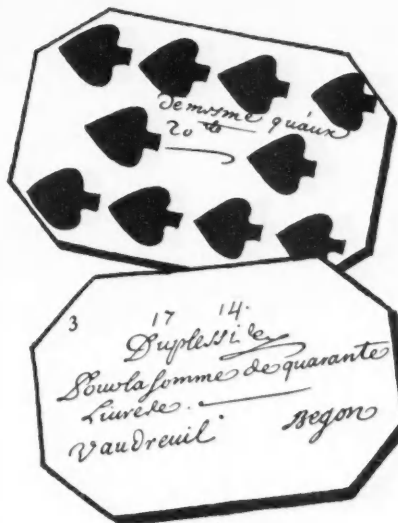 demesme quaux
20 ₶
3 17 14.
Duplessi
Pour la Somme de quarante
Livre
Vaudreuil Begon